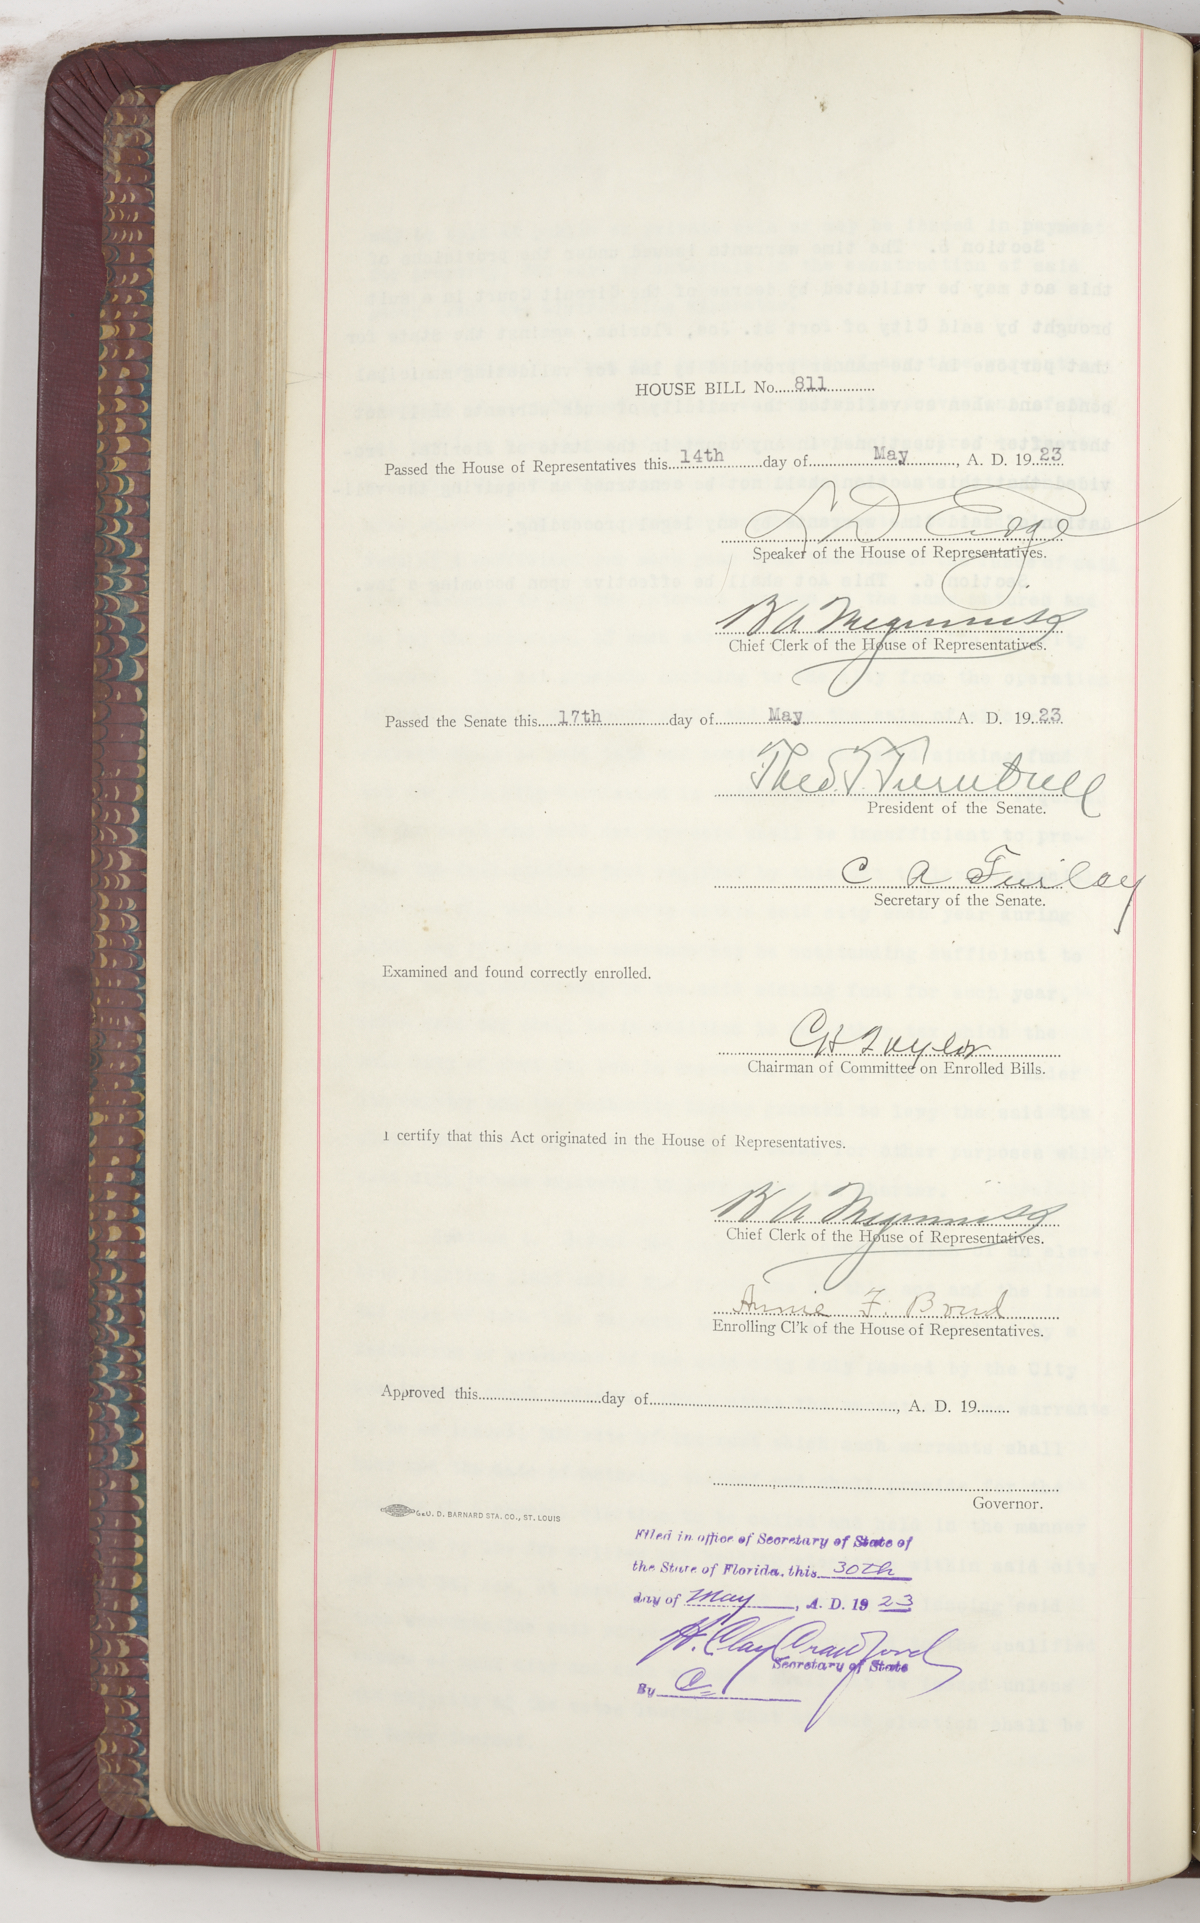 HOUSE BILL No. 811
Passed the House of Representatives this 14th day of May, A. D. 19 23
L D Edge
Speaker of the House of Representatives.
B A Meginniss
Chief Clerk of the House of Representatives.
Passed the Senate this 17th day of May A. D. 19 23
Theo. T. Turnbull
President of the Senate.
C A Finley
Secretary of the Senate.
Examined and found correctly enrolled.
C H Taylor
Chairman of Committee on Enrolled Bills.
I certify that this Act originated in the House of Representatives.
B A Meginniss
Chief Clerk of the House of Representatives.
Annie F. Bond
Enrolling Cl'k of the House of Representatives.
Approved this day of , A. D. 19
Governor.
GEO. D. BARNARD STA. CO., ST. LOUIS
Filed in office of Secretary of State of
the State of Florida, this 30th
day of May, A. D. 19 23
H. Clay Crawford
Secretary of State
By C